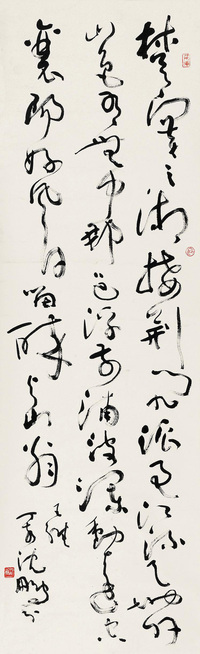 楚塞三湘接荆门九派通江流天地外
山色有无中郡邑浮前浦波澜动远空
襄阳好风日留醉与山翁
王维
丁亥沈鹏书